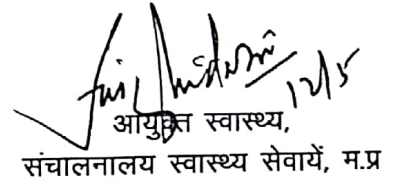 12/5
आयुक्त स्वास्थ्य,
संचालनालय स्वास्थ्य सेवायें, म.प्र